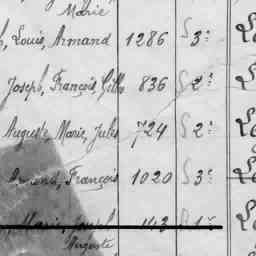 Marie
Louis, Armand 1286 3:
Joseph, François, Gilles 836 2:
Auguste, Marie, Jules 724 2:
Armand, François 1020 3:
Marie, Joseph 143 1:
Auguste